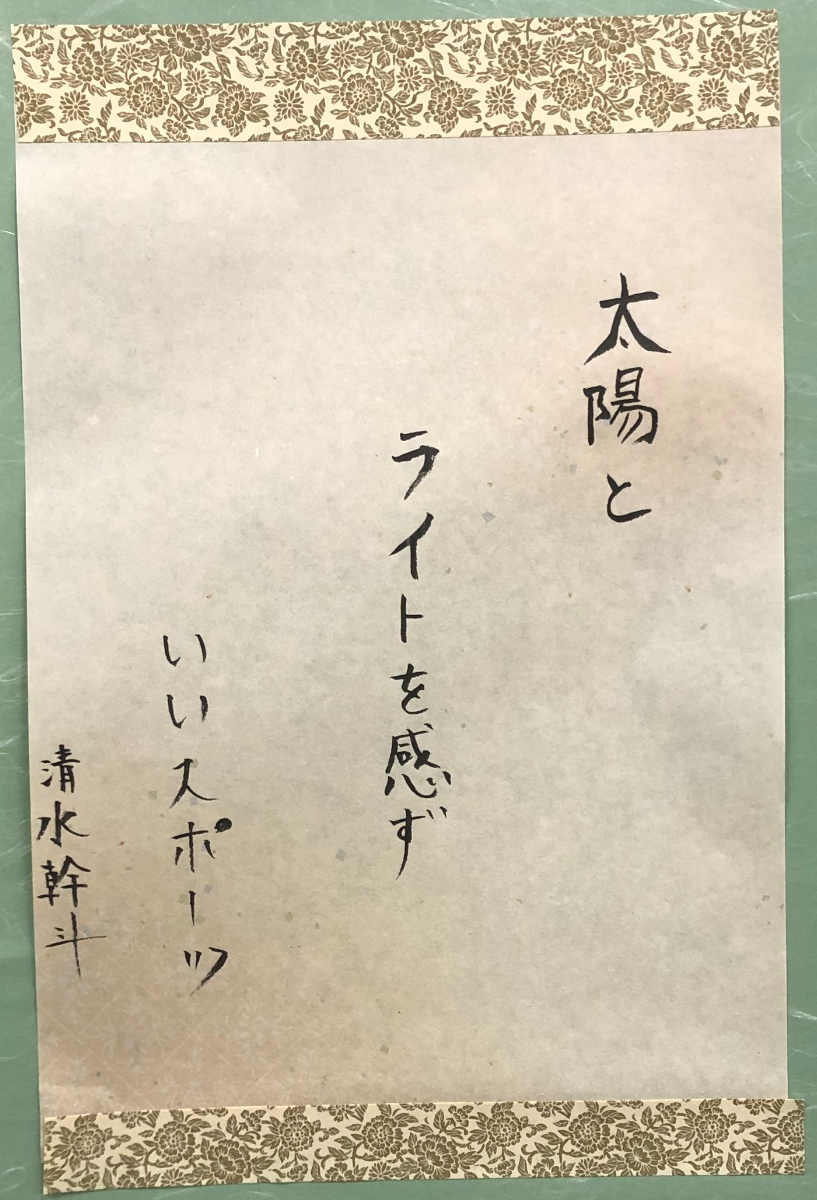 太陽と
ライトを感ず
いいスポーツ
清水幹斗